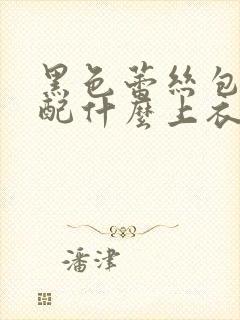 黑色蕾絲包
配什麼上衣
潘津